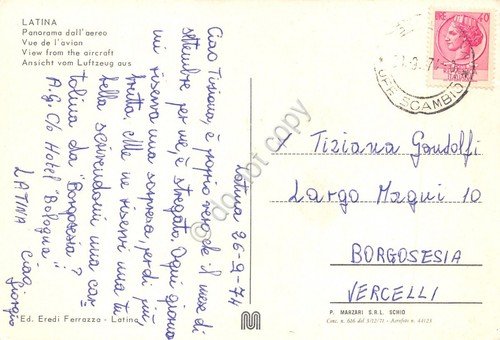 LATINA
Panorama dall'aereo
Vue de l'avion
View from the aircraft
Ansicht vom Luftzeug aus
Latina 26-9-74
Ciao Tiziana, è proprio vero che il mese di
settembre per me, è stregato. Ogni giorno
mi riserva una sorpresa, per di più,
brutta. Me ne riservi una tu
bella scrivendomi una car-
tolina da "Borgosesia"?
A.G. c/o Hotel "Bologna"
LATINA Ciao
Giorgio
LIRE 40
UFF. SCAMBIO
Tiziana Gondolfi
Largo Magni 10
BORGOSESIA
VERCELLI
Ed. Eredi Ferrazza - Latina
P. MARZARI S.R.L. SCHIO
do not copy